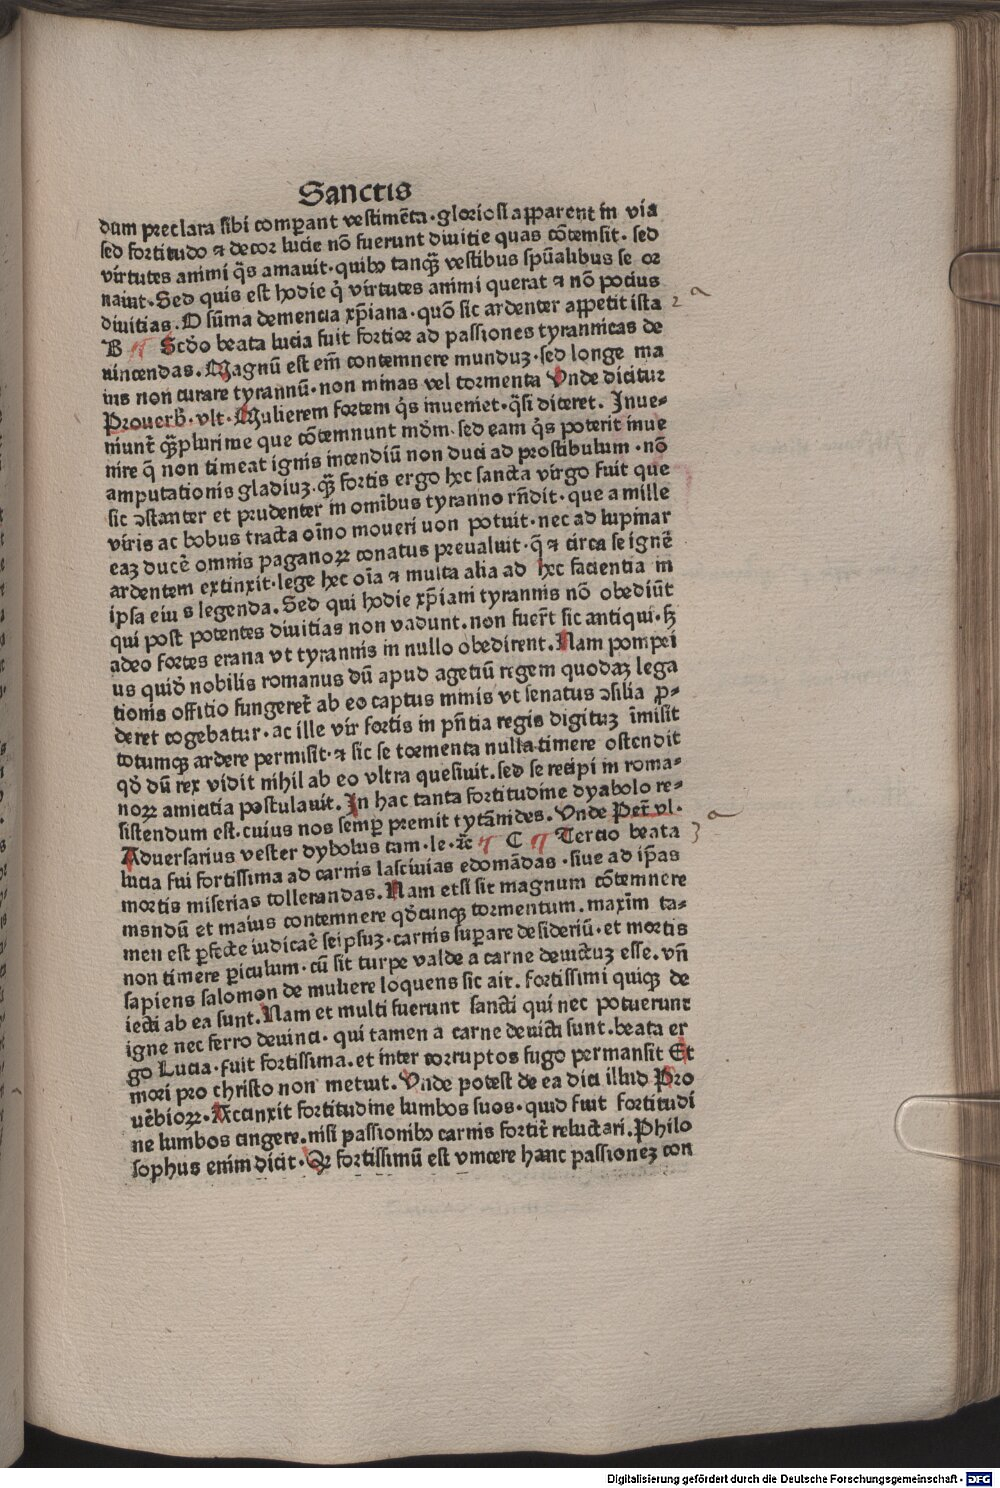 Sanctis
dum preclara sibi comꝑant vestimēta·gloriosi apparent in via
sed fortitudo ⁊ decor lucie nō fuerunt diuitie quas cōtemsit· sed
virtutes animi q̄s amauit·quibꝰ tanqꝫ vestibus spūalibus se or
nauit·Sed quis est hodie q̇ virtutes animi querat ⁊ nō pocius
diuitias.O sūma demencia xp̄iana·quō sic ardenter appetit ista 2ᵃ
B ¶ Scd̄o beata lucia fuit fortior ad passiones tyrannicas de
uincendas.Magnū est em̄ contemnere munduꝫ·sed longe ma
ius non curare tyrannū·non minas vel tormenta Vnde dicitur
Prouerb̄·vlt·Mulierem fortem q̄s inueniet·q̄si diceret. Inue-
niunt̄ qꝫplurime que cōtemnunt mōm·sed eam q̄s poterit inue
nire q̄ non timeat ignis incendiū non duci ad prostibulum·nō
amputationis gladiuꝫ·qꝫ fortis ergo hec sancta virgo fuit que
sic ɔstanter et prudenter in omībus tyranno rn̄dit·que a mille
viris ac bobus tracta oīno moueri uon potuit·nec ad lupinar
eaꝫ ducē omnis paganoꝝ conatus preualuit·q̄ ⁊ circa se ignē
ardentem extinxit·lege hec oīa ⁊ multa alia ad hec facientia in
ipsa eiu s legenda.Sed qui hodie xp̄iani tyrannis nō obediūt
qui post potentes diuitias non vadunt.non fuer̄t sic antiqui·sꝫ
adeo fortes erana vt tyrannis in nullo obedirent.Nam pompei
us quid̄ nobilis romanus dū apud agetiū regem quodaꝫ lega
tionis offitio fungeret̄ ab eo captus minis vt senatus ɔsilia ꝓ-
deret cogebatur·ac ille vir fortis in pn̄tia regis digituꝫ īmisit
totumqꝫ ardere permisit·⁊ sic se tormenta nulla timere ostendit
qd̄ dū rex vidit nihil ab eo vltra quesiuit.sed se recipi in roma-
noꝝ amicitia postulauit.In hac tanta fortitudine dyabolo re-
sistendum est.cuius nos semꝑ premit tytānides.Vnde Petr̄ vl·
Aduersarius vester dybolus tam·le·⁊c̄ ¶ C ¶ Tercio beata 3ᵃ
lucia fui fortissima ad carnis lasciuias edomādas·siue ad ip̄as
mortis miserias tollerandas.Nam etsi sit magnum cōtemnere
msndū et maius contemnere qd̄cunqꝫ tormentum.maxīm ta-
men est ꝑfecte iudicaē seipsuꝫ·carnis suꝑare desideriū·et mortis
non timere ꝑiculum·cū sit turpe valde a carne deuictuꝫ esse.vn̄
sapiens salomon de muliere loquens sic ait.fortissimi quiqꝫ de
iecti ab ea sunt.Nam et multi fuerunt sancti qui nec potuerunt
igne nec ferro deuinci·qui tamen a carne deuicti sunt.beata er
go Lucia·fuit fortissima.et inter corruptos fugo permansit Et
mori pro christo non metuit.Vnde potest de ea dici illud Pro
uēbioꝝ·Accinxit fortitudine lumbos suos·quid fuit fortitudi
ne lumbos cingere.nisi passionibꝰ carnis fortit̄ reluctari.Philo
sophus enim dicit·Qꝛ fortissimū est vincere hanc passioneꝫ con
Digitalisierung gefördert durch die Deutsche Forschungsgemeinschaft - DFG